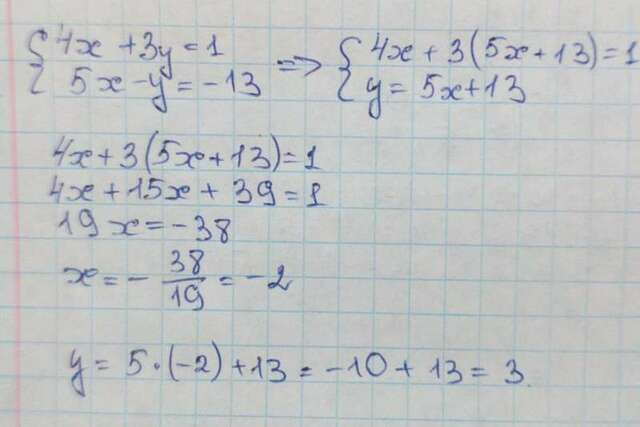 { 4x + 3y = 1 => { 4x + 3(5x + 13) = 1
5x - y = -13 y = 5x + 13
4x + 3(5x + 13) = 1
4x + 15x + 39 = 1
19x = -38
x = - 38/19 = -2
y = 5 · (-2) + 13 = -10 + 13 = 3